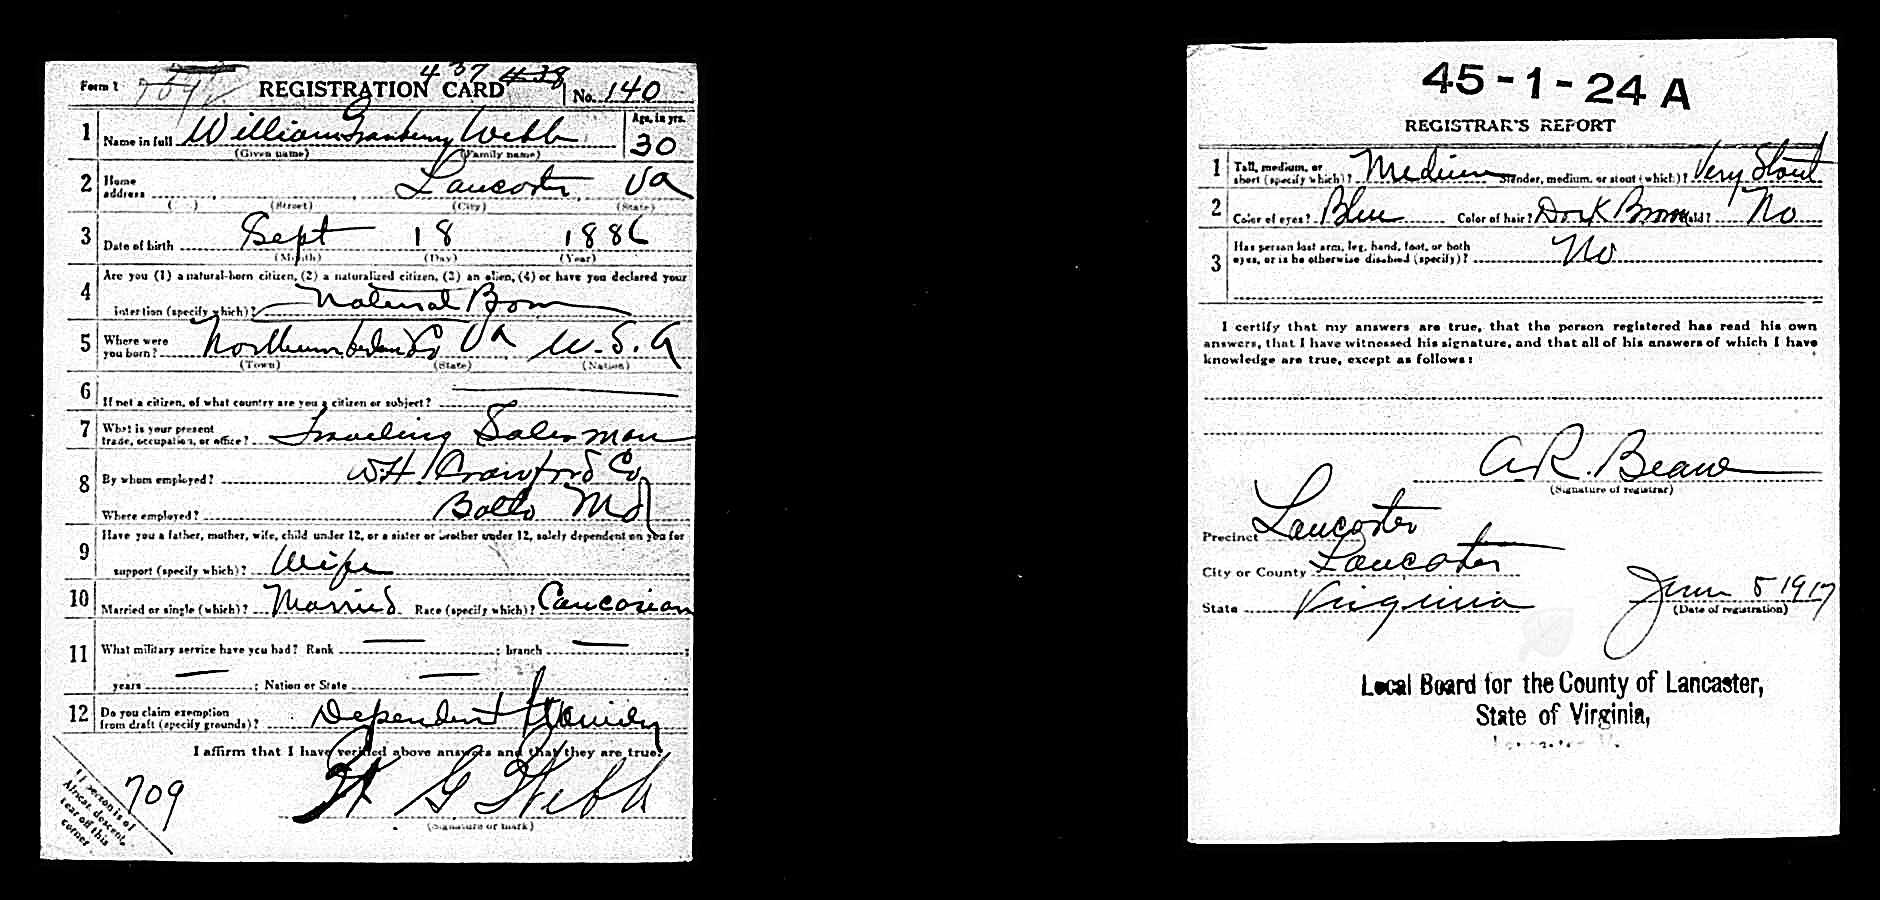 Form 1 REGISTRATION CARD 437 438 No. 140
1 Name in full William Granberry Webb Age, in yrs. 30
(Given name) (Family name)
2 Home address Lancaster Va
(Street) (City) (State)
3 Date of birth Sept 18 1886
(Month) (Day) (Year)
4 Are you (1) a natural-born citizen, (2) a naturalized citizen, (3) an alien, (4) or have you declared your
intention (specify which)? Natural Born
5 Where were you born? Northumberland Co Va U.S.A
(Town) (State) (Nation)
6 If not a citizen, of what country are you a citizen or subject?
7 What is your present trade, occupation, or office? Traveling Salesman
8 By whom employed? W.H. Crawford Co
Where employed? Balto Md
9 Have you a father, mother, wife, child under 12, or a sister or brother under 12, solely dependent on you for
support (specify which)? Wife
10 Married or single (which)? Married Race (specify which)? Caucasian
11 What military service have you had? Rank ; branch ;
years ; Nation or State
12 Do you claim exemption from draft (specify grounds)? Dependent Family
I affirm that I have verified above answers and that they are true.
W G Webb
(Signature or mark)
709
If person is of
African descent,
tear off this
corner
45-1-24 A
REGISTRAR'S REPORT
1 Tall, medium, or short (specify which)? Medium Slender, medium, or stout (which)? Very Stout
2 Color of eyes? Blue Color of hair? Dark Brown Bald? No
3 Has person lost arm, leg, hand, foot, or both
eyes, or is he otherwise disabled (specify)? No
I certify that my answers are true, that the person registered has read his own
answers, that I have witnessed his signature, and that all of his answers of which I have
knowledge are true, except as follows:
A.R. Beane
(Signature of registrar)
Precinct Lancaster
City or County Lancaster
State Virginia June 5 1917
(Date of registration)
Local Board for the County of Lancaster,
State of Virginia,